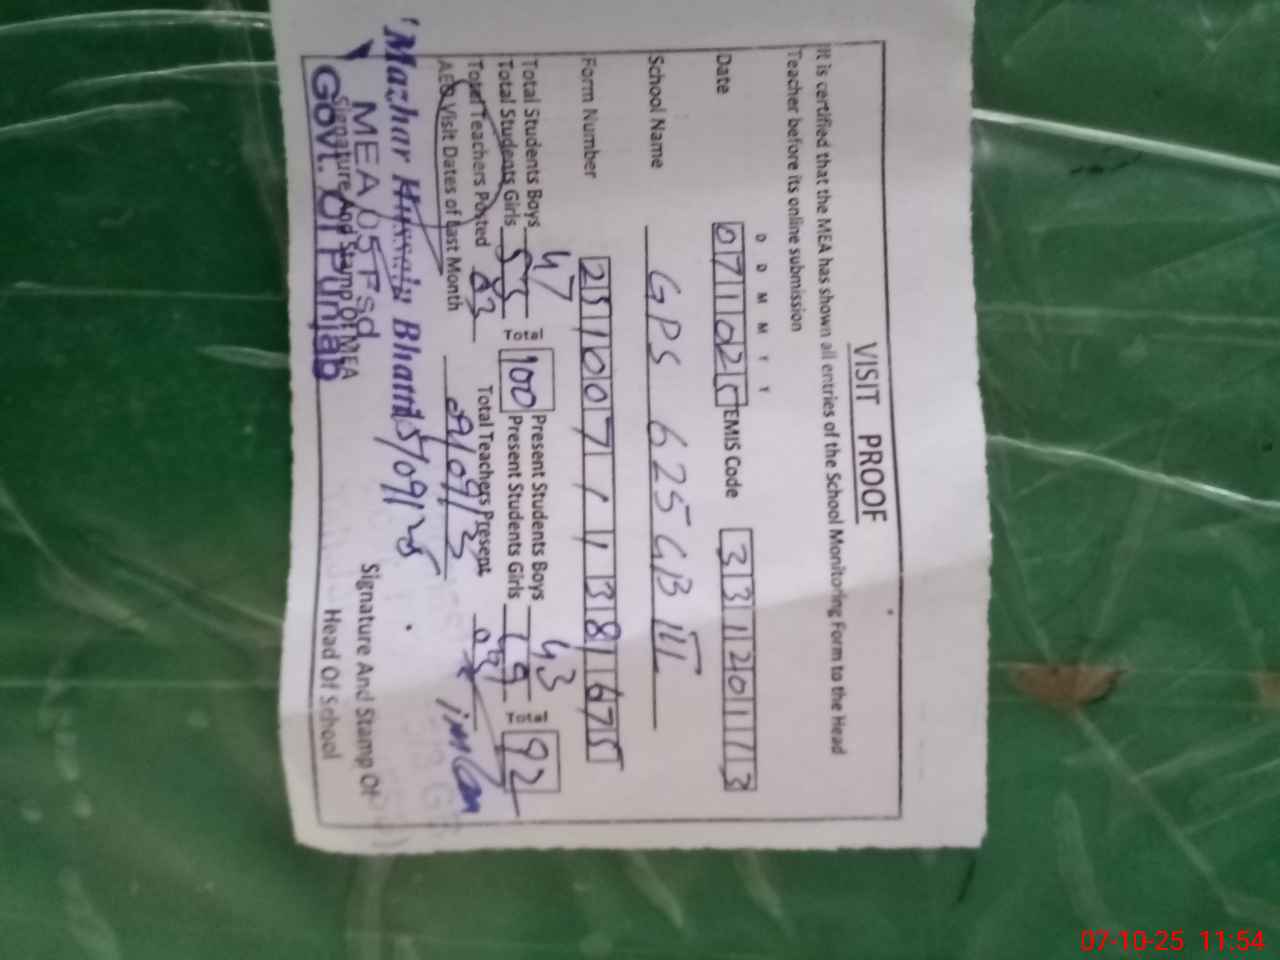 VISIT PROOF
It is certified that the MEA has shown all entries of the School Monitoring Form to the Head
Teacher before its online submission
D D M M Y Y
Date 071025 EMIS Code 33120113
School Name GPS 625 GB III
Form Number
Total Students Boys 47 Total 100 Present Students Boys 43 Total 92
Total Students Girls 53 Present Students Girls 49
Total Teachers Posted 03 Total Teachers Present
AEO Visit Dates of Last Month
Mazhar Hussain Bhatti 15/09/25
MEA 05 Fsd
Govt. Of Punjab
Signature And Stamp Of MEA
Signature And Stamp Of
Head Of School
07-10-25 11:54